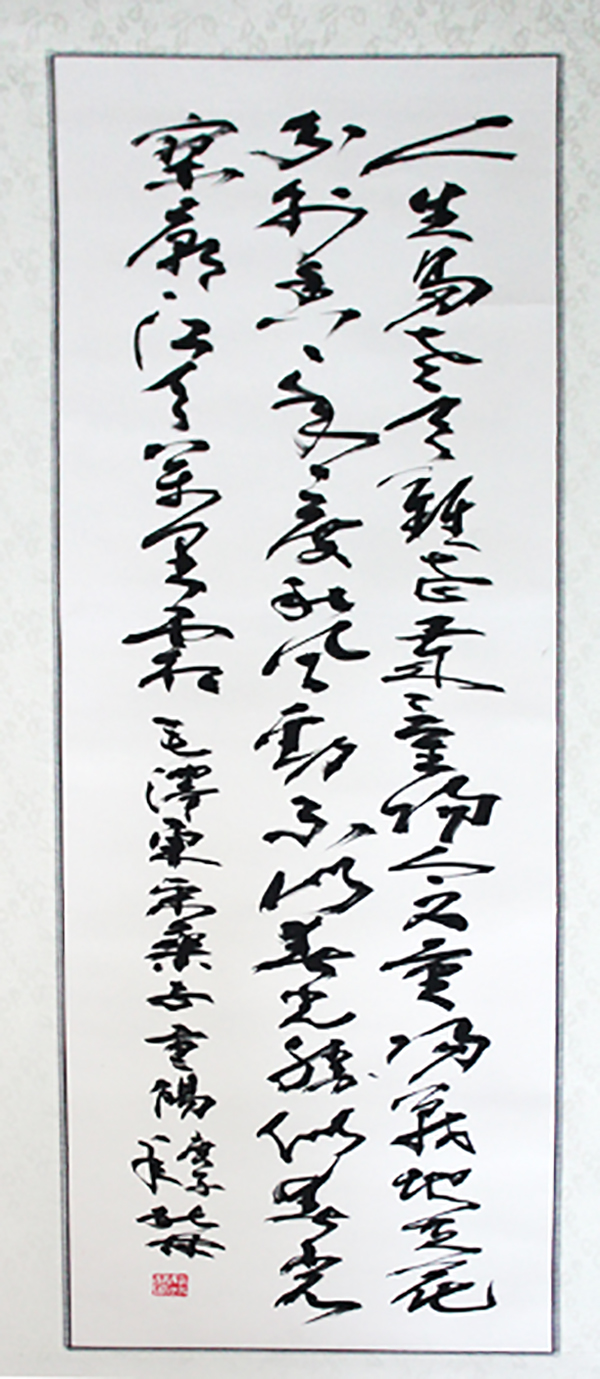 人生易老天難老歲歲重陽今又重陽戰地黃花
分外香一年一度秋風勁不似春光勝似春光
寥廓江天萬里霜 毛澤東采桑子重陽